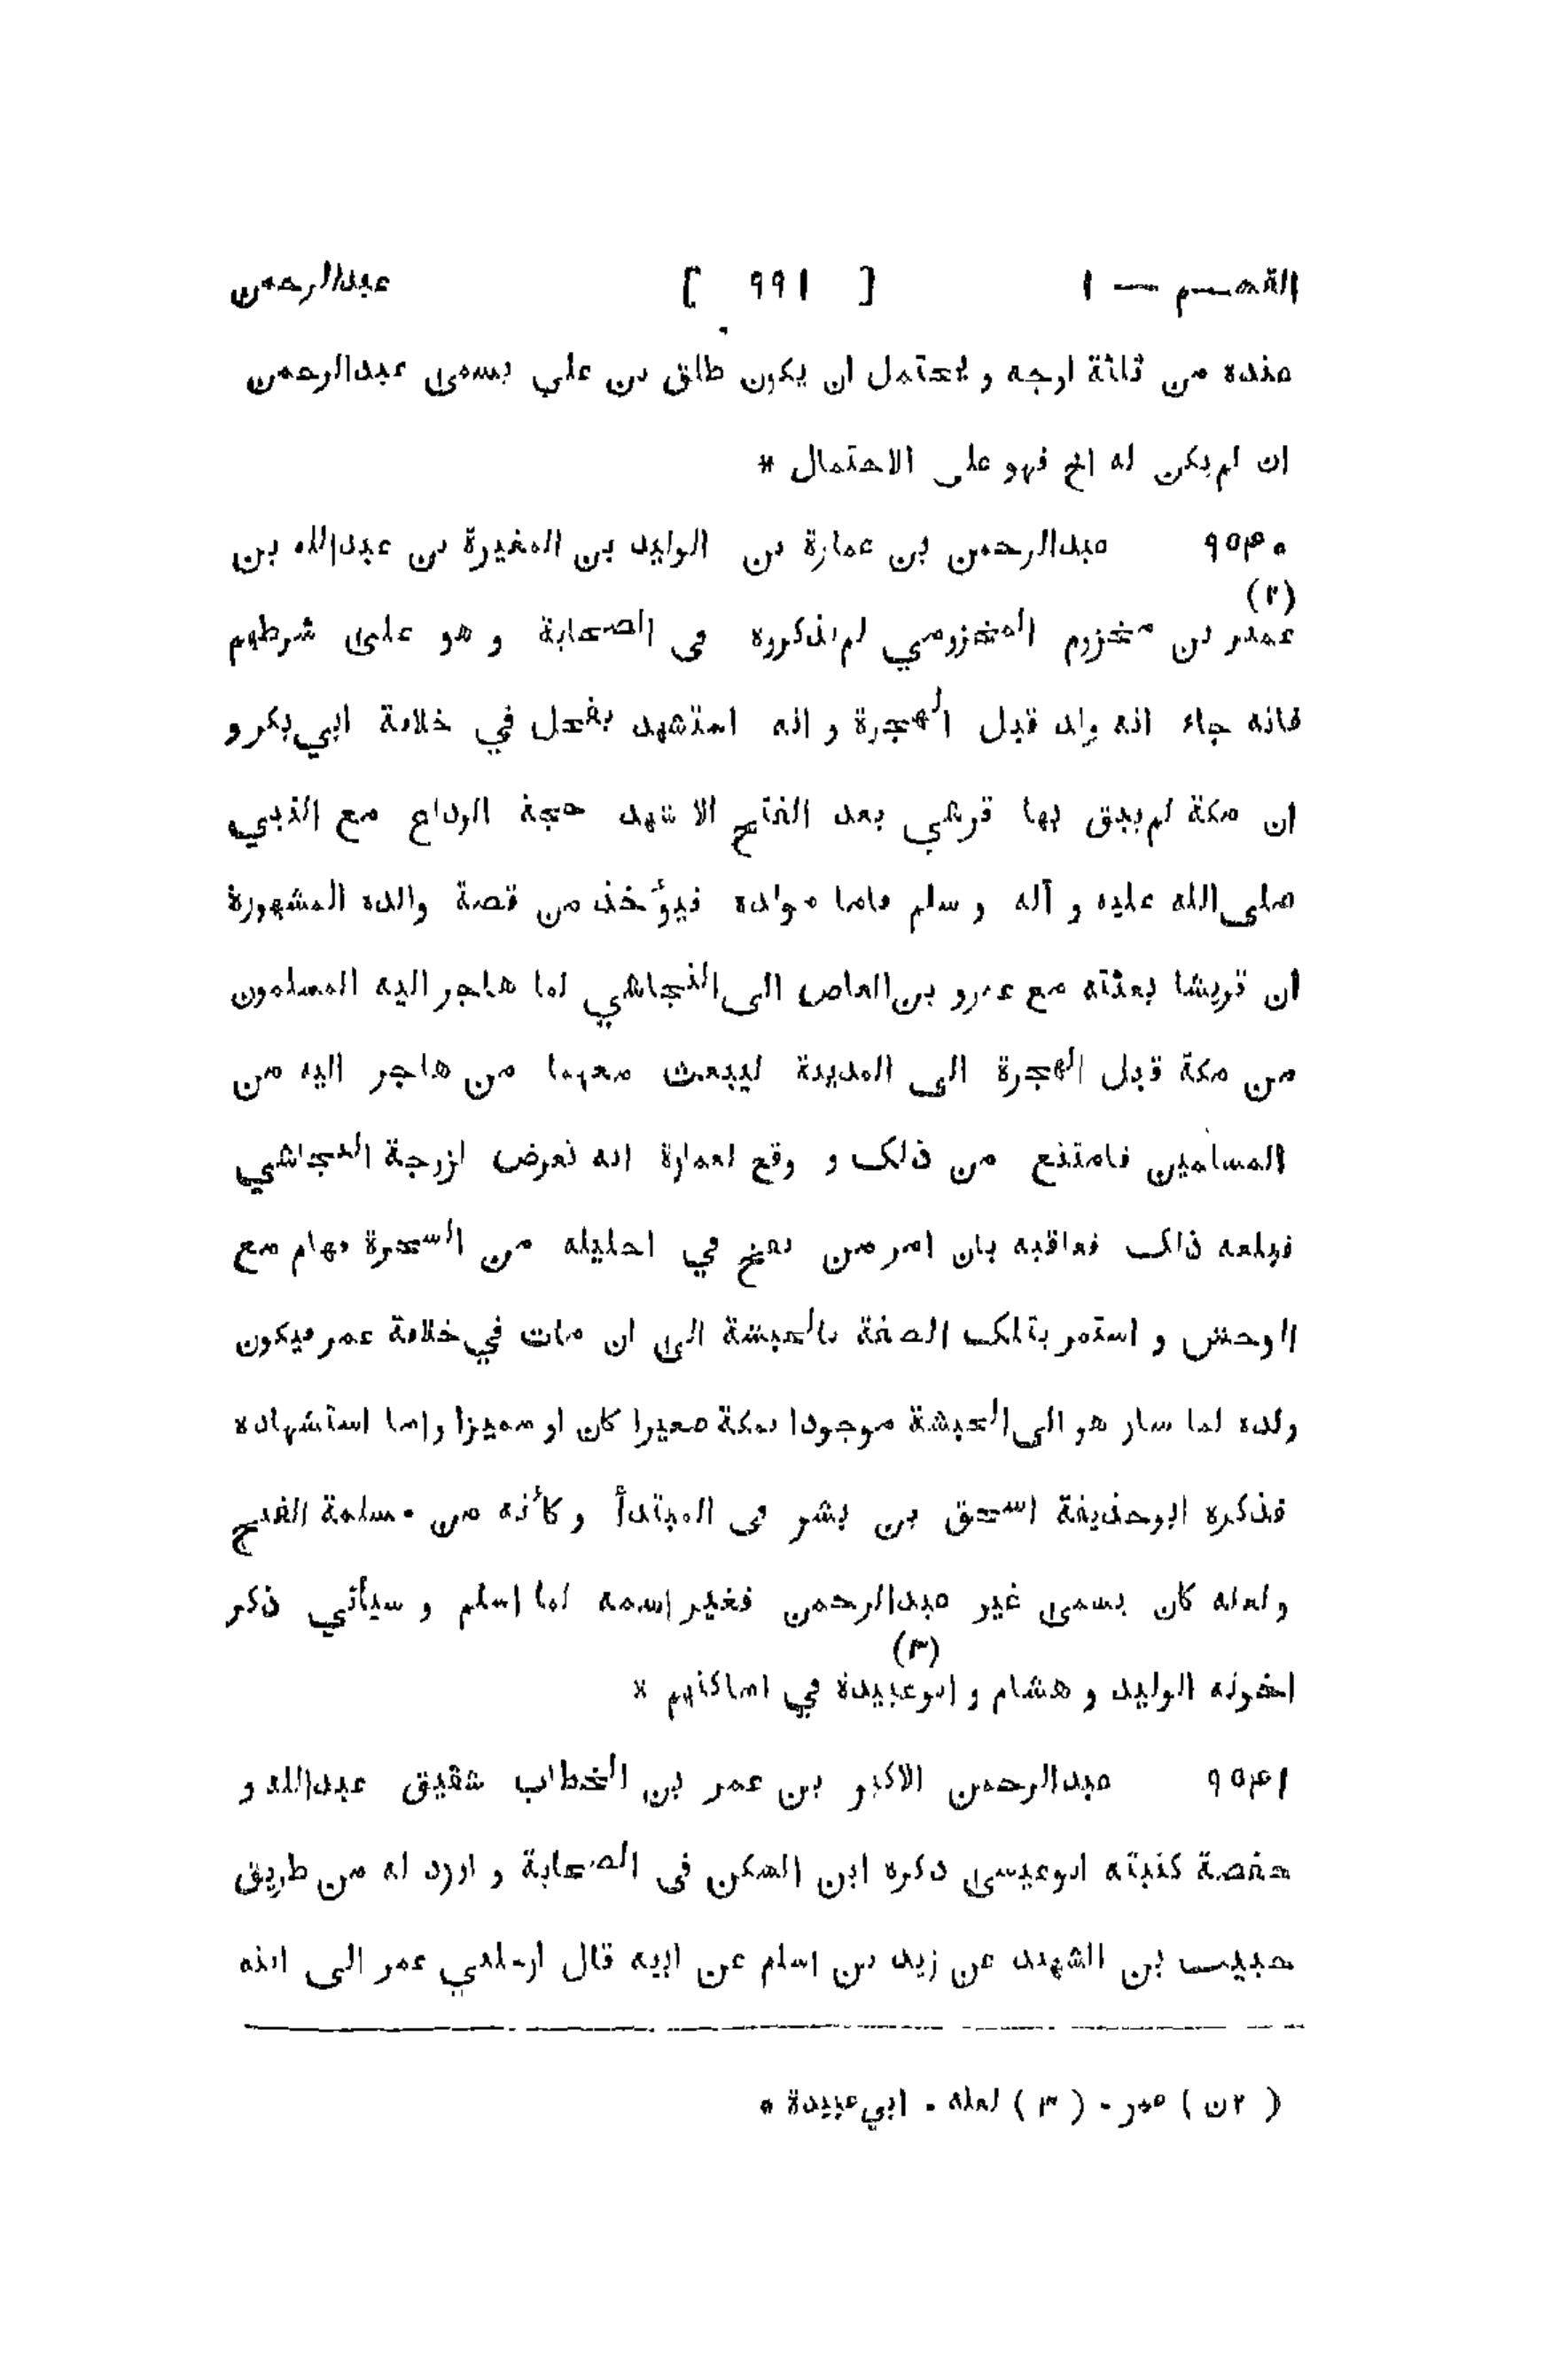 القسم — ١ [ ٩٩١ ] عبدالرحمن
منده من ثلثة اوجه و يحتمل ان يكون طلق بن علي يسمى عبدالرحمن
ان لم يكن له اخ فهو على الاحتمال *
٩٥٤٠ عبدالرحمن بن عمارة بن الوليد بن المغيرة بن عبدالله بن
(٢)
عمر بن مخزوم المخزومي لم يذكروه فى الصحابة و هو على شرطهم
فانه جاء انه ولد قبل الهجرة و انه استشهد بفحل في خلافة ابي بكر و
ان مكة لم يبق بها قرشي بعد الفتح الا شهد حجة الوداع مع النبي
صلى الله عليه و آله و سلم فاما مولده فيؤخذ من قصة والده المشهورة
ان قريشا بعثته مع عمرو بن العاص الى النجاشي لما هاجر اليه المسلمون
من مكة قبل الهجرة الى المدينة ليبعث معهما من هاجر اليه من
المسلمين فامتنع من ذلك و وقع لعمارة انه تعرض لزوجة النجاشي
فبلغه ذلك فعاقبه بان امر من نفخ في احليله من السحرة فهام مع
الوحش و استمر بتلك الصفة بالحبشة الى ان مات في خلافة عمر فيكون
ولده لما سار هو الى الحبشة موجودا بمكة صغيرا كان او مميزا و اما استشهاده
فذكره ابوحذيفة اسحق بن بشر فى المبتدأ و كأنه من مسلمة الفتح
و لعله كان يسمى غير عبدالرحمن فغير اسمه لما اسلم و سيأتي ذكر
(٣)
اخوته الوليد و هشام و ابوعبيدة في اماكنهم *
٩٥٤١ عبدالرحمن الاكبر بن عمر بن الخطاب شقيق عبدالله و
حفصة كنيته ابوعيسى ذكره ابن السكن فى الصحابة و اورد له من طريق
حبيب بن الشهيد عن زيد بن اسلم عن ابيه قال ارسلني عمر الى ابنه
( ٢ ن ) - ( ٣ ) لعله - ابي عبيدة *